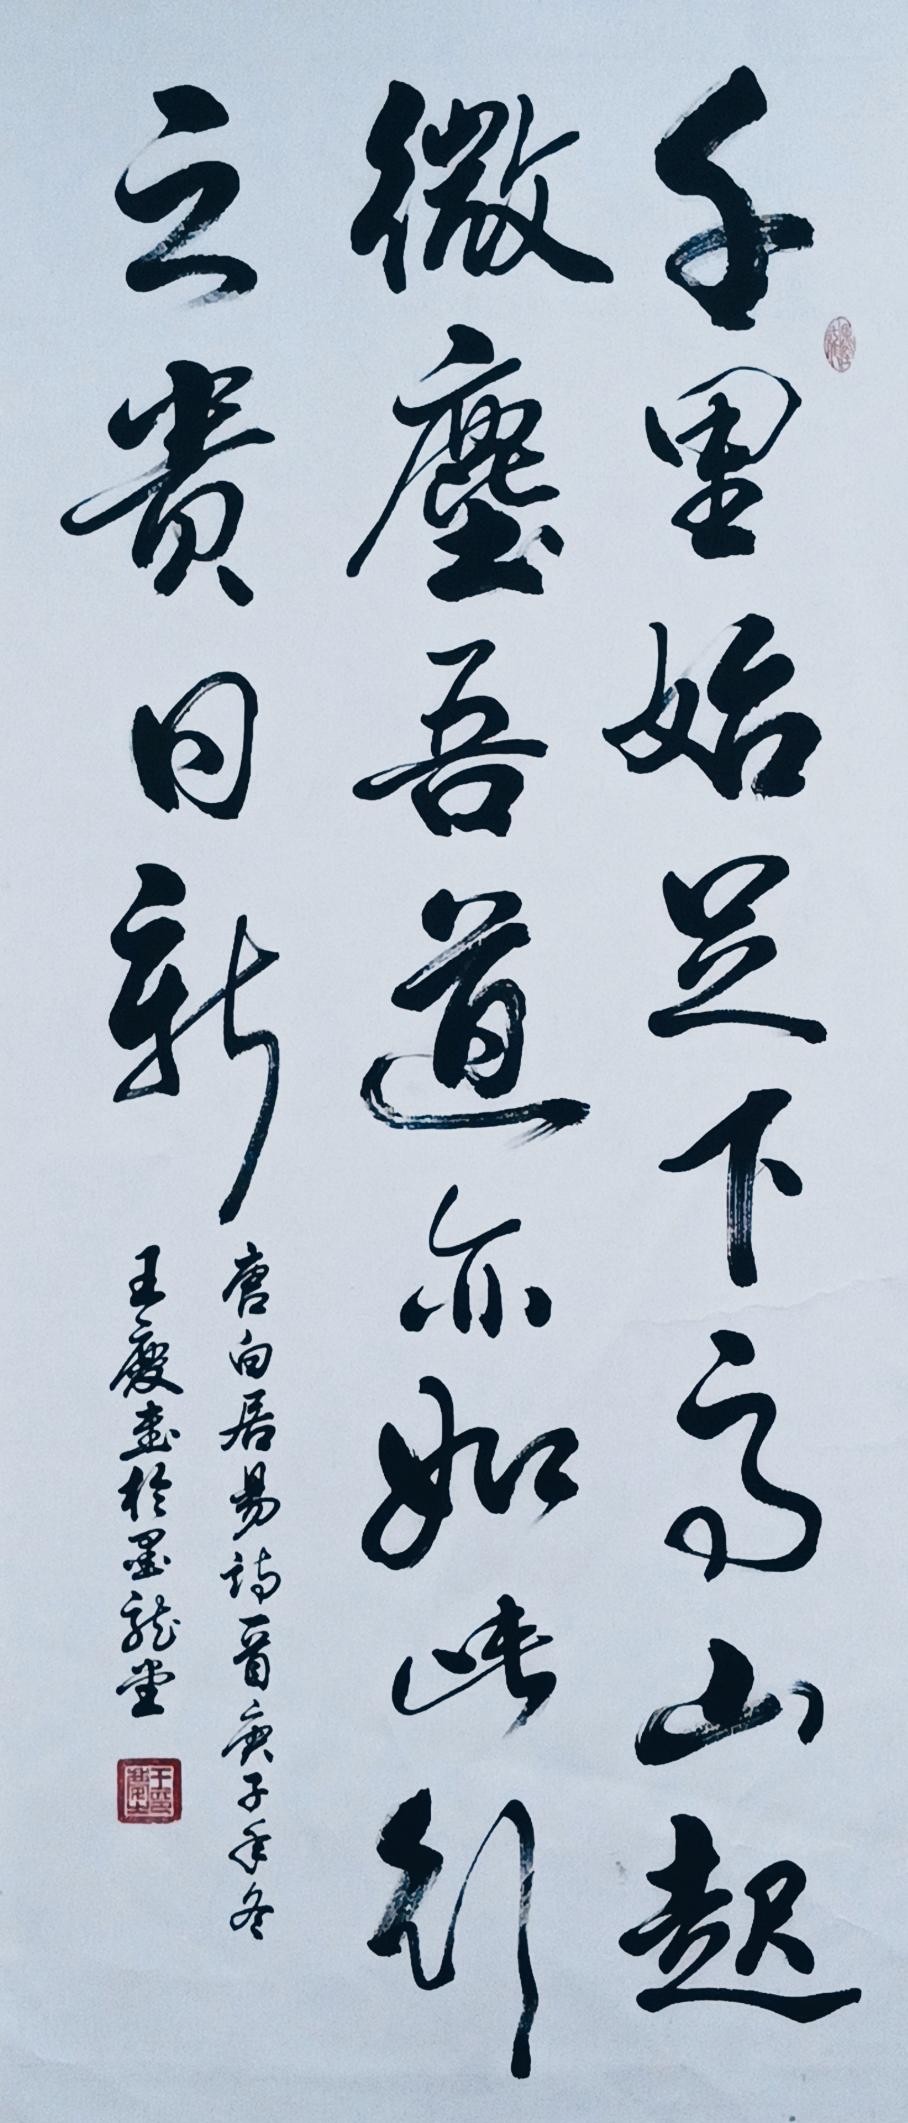 千里始足下高山起
微塵吾道亦如此行
之貴日新
唐白居易詩一首庚子年冬
王慶書於墨龍堂